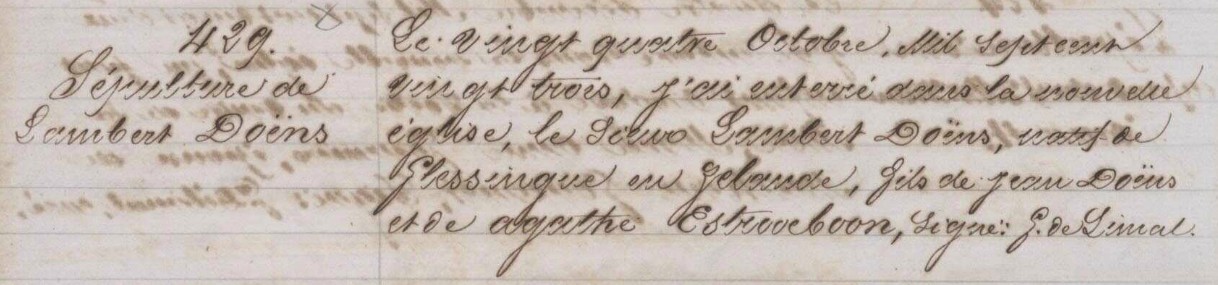 429.
Sépulture de
Lambert Doëns
Le vingt quatre Octobre, Mil Sept cent
vingt trois, j'ai enterré dans la nouvelle
église, le Sieur Lambert Doëns, natif de
Flessingue en Zelande, fils de Jean Doëns
et de agathe Estroeboon, Signé: G. de Limal.